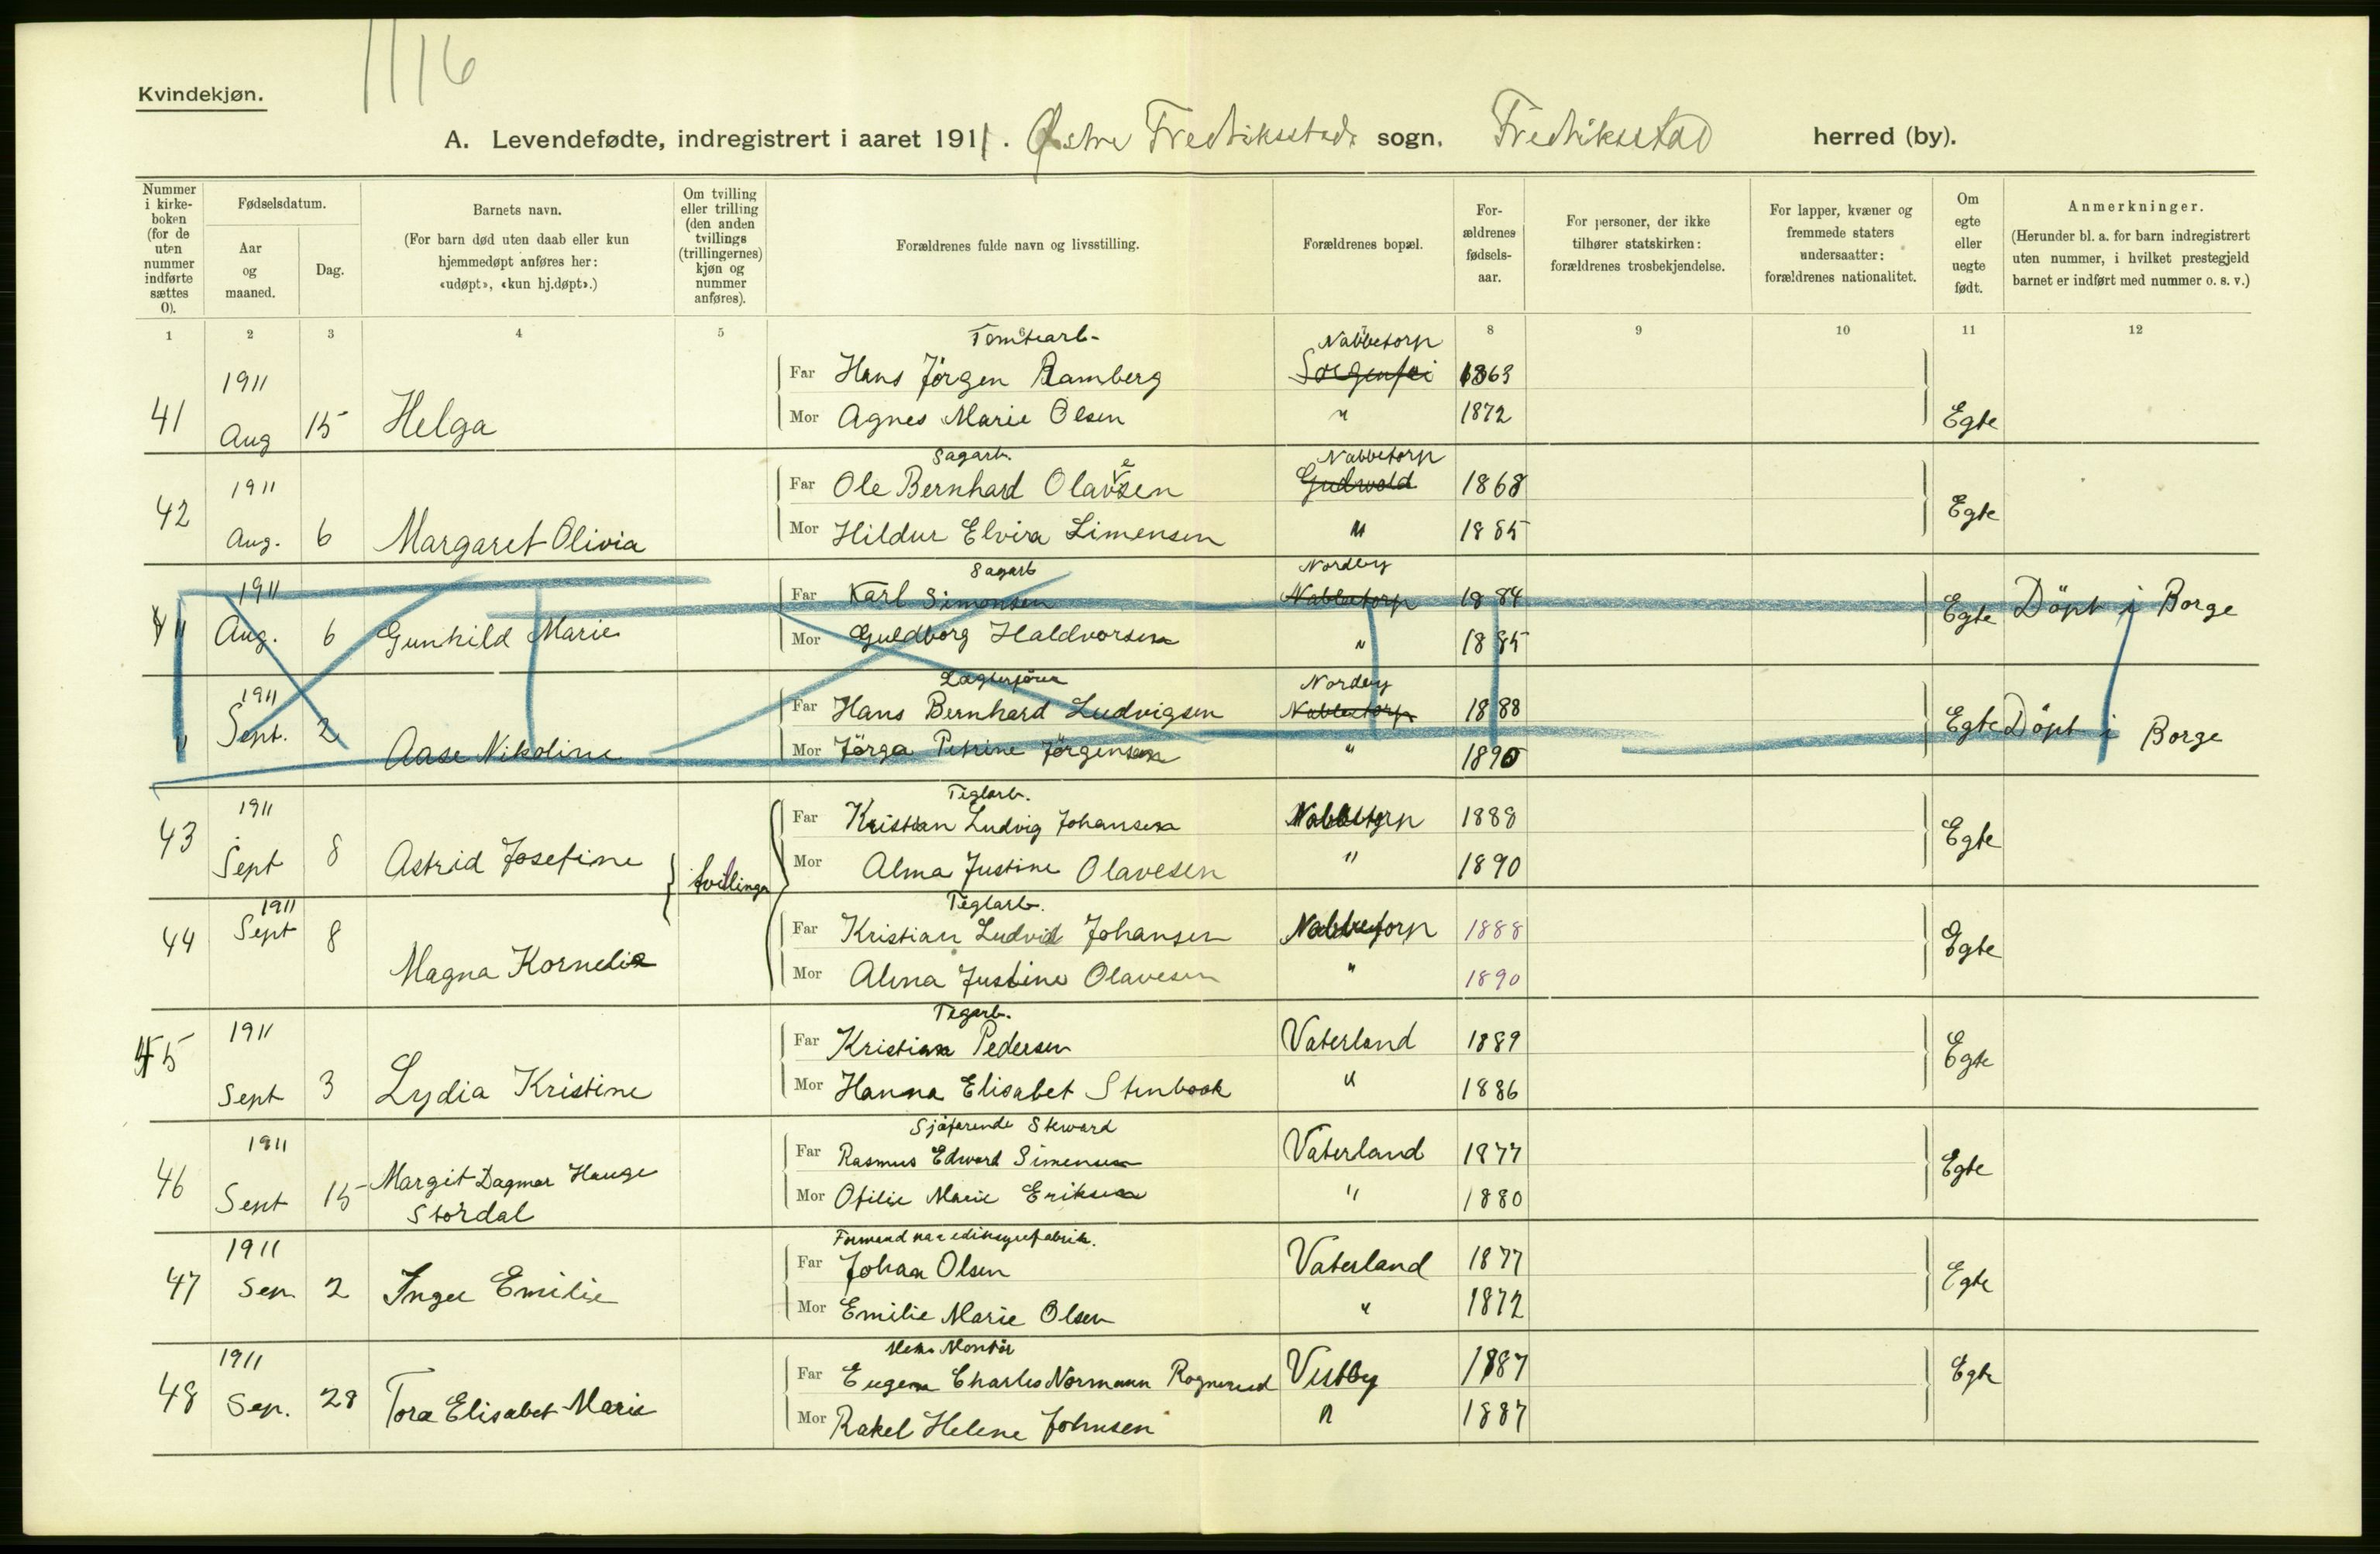 1116
Kvindekjøn.
A. Levendefødte, indregistrert i aaret 1911. Østre Fredriksstads sogn. Fredriksstad herred (by).
Nummer i kirkeboken (for de uten nummer indførte sættes 0).
Fødselsdatum.
Aar og maaned.
Dag.
Barnets navn.
(For barn død uten daab eller kun hjemmedøpt anføres her: «udøpt», «kun hj.døpt».)
Om tvilling eller trilling (den anden tvillings (trillingernes) kjøn og nummer anføres).
Forældrenes fulde navn og livsstilling.
Forældrenes bopæl.
Forældrenes fødselsaar.
For personer, der ikke tilhører statskirken: forældrenes trosbekjendelse.
For lapper, kvæner og fremmede staters undersaatter: forældrenes nationalitet.
Om egte eller uegte født.
Anmerkninger.
(Herunder bl. a. for barn indregistrert uten nummer, i hvilket prestegjeld barnet er indført med nummer o. s. v.)
1 2 3 4 5 6 7 8 9 10 11 12
Tomtearb. Nabbetorp
1911 Far Hans Jörgen Ramberg Sorgenfri 1863
41 Aug 15 Helga Mor Agnes Marie Olsen " 1872 Egte
Sagarb. Nabbetorp
1911 Far Ole Bernhard Olavesen Gudvold 1868
42 Aug. 6 Margaret Olivia Mor Hildur Elvira Simensen " 1885 Egte
Sagarb Nordby
1911 Far Karl Simonsen Nabbetorp 1884
" Aug. 6 Gunhild Marie Mor Guldborg Haldvorsen " 1885 Egte Döpt i Borge
Nordby
1911 Far Hans Bernhard Ludvigsen Nabbetorp 1888
" Sept. 2 Aase Nikoline Mor Jörga Petrine Jörgensen " 1890 Egte Döpt i Borge
Teglarb.
1911 Far Kristian Ludvig Johansen Nabbetorp 1888
43 Sept 8 Astrid Josefine tvillinger Mor Alma Justine Olavesen " 1890 Egte
Teglarb.
1911 Far Kristian Ludvig Johansen Nabbetorp 1888
44 Sept 8 Magna Kornelia Mor Alma Justine Olavesen " 1890 Egte
Tegarb.
1911 Far Kristian Pedersen Vaterland 1889
45 Sept 3 Lydia Kristine Mor Hanna Elisabet Stenbook " 1886 Egte
Sjöfarende Steward
1911 Far Rasmus Edward Simensen Vaterland 1877
46 Sept 15 Margit Dagmar Hauge Stordal Mor Otilie Marie Eriksen " 1880 Egte
Formand paa ediksyrefabrik.
1911 Far Johan Olsen Vaterland 1877
47 Sep. 2 Inger Emilie Mor Emilie Marie Olsen " 1872 Egte
Mek. Montör
1911 Far Eugen Charles Normann Rognerud Vestby 1887
48 Sep. 28 Tora Elisabet Marie Mor Rakel Helene Johnsen " 1887 Egte